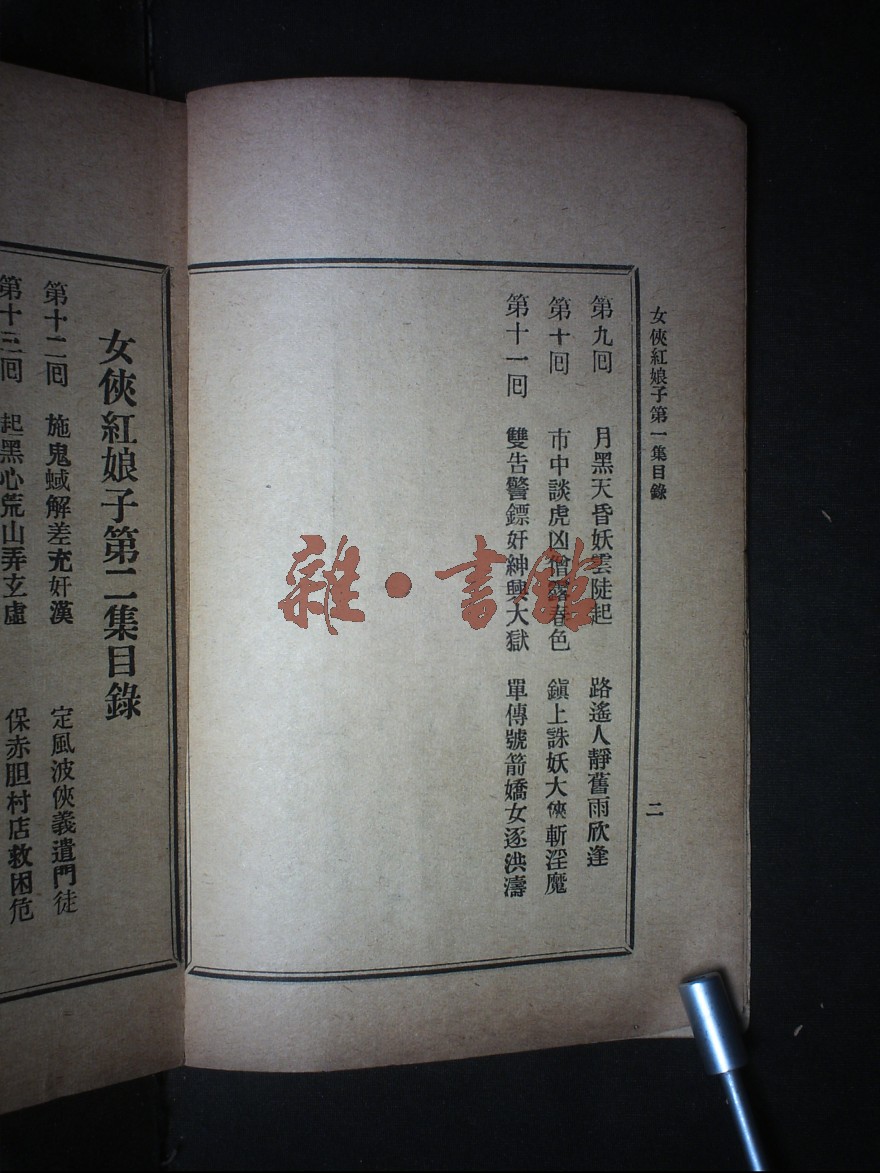 女俠紅娘子第一集目錄
二
第九回 月黑天昏妖雲陡起 路遙人靜舊雨欣逢
第十回 市中談虎凶僧露春色 鎮上誅妖大俠斬淫魔
第十一回 雙告警鏢奸紳興大獄 單傳號箭嬌女逐洪濤
女俠紅娘子第二集目錄
第十二回 施鬼蜮解差充奸漢 定風波俠義遣門徒
第十三回 起黑心荒山弄玄虛 保赤胆村店救困危
雜·書館